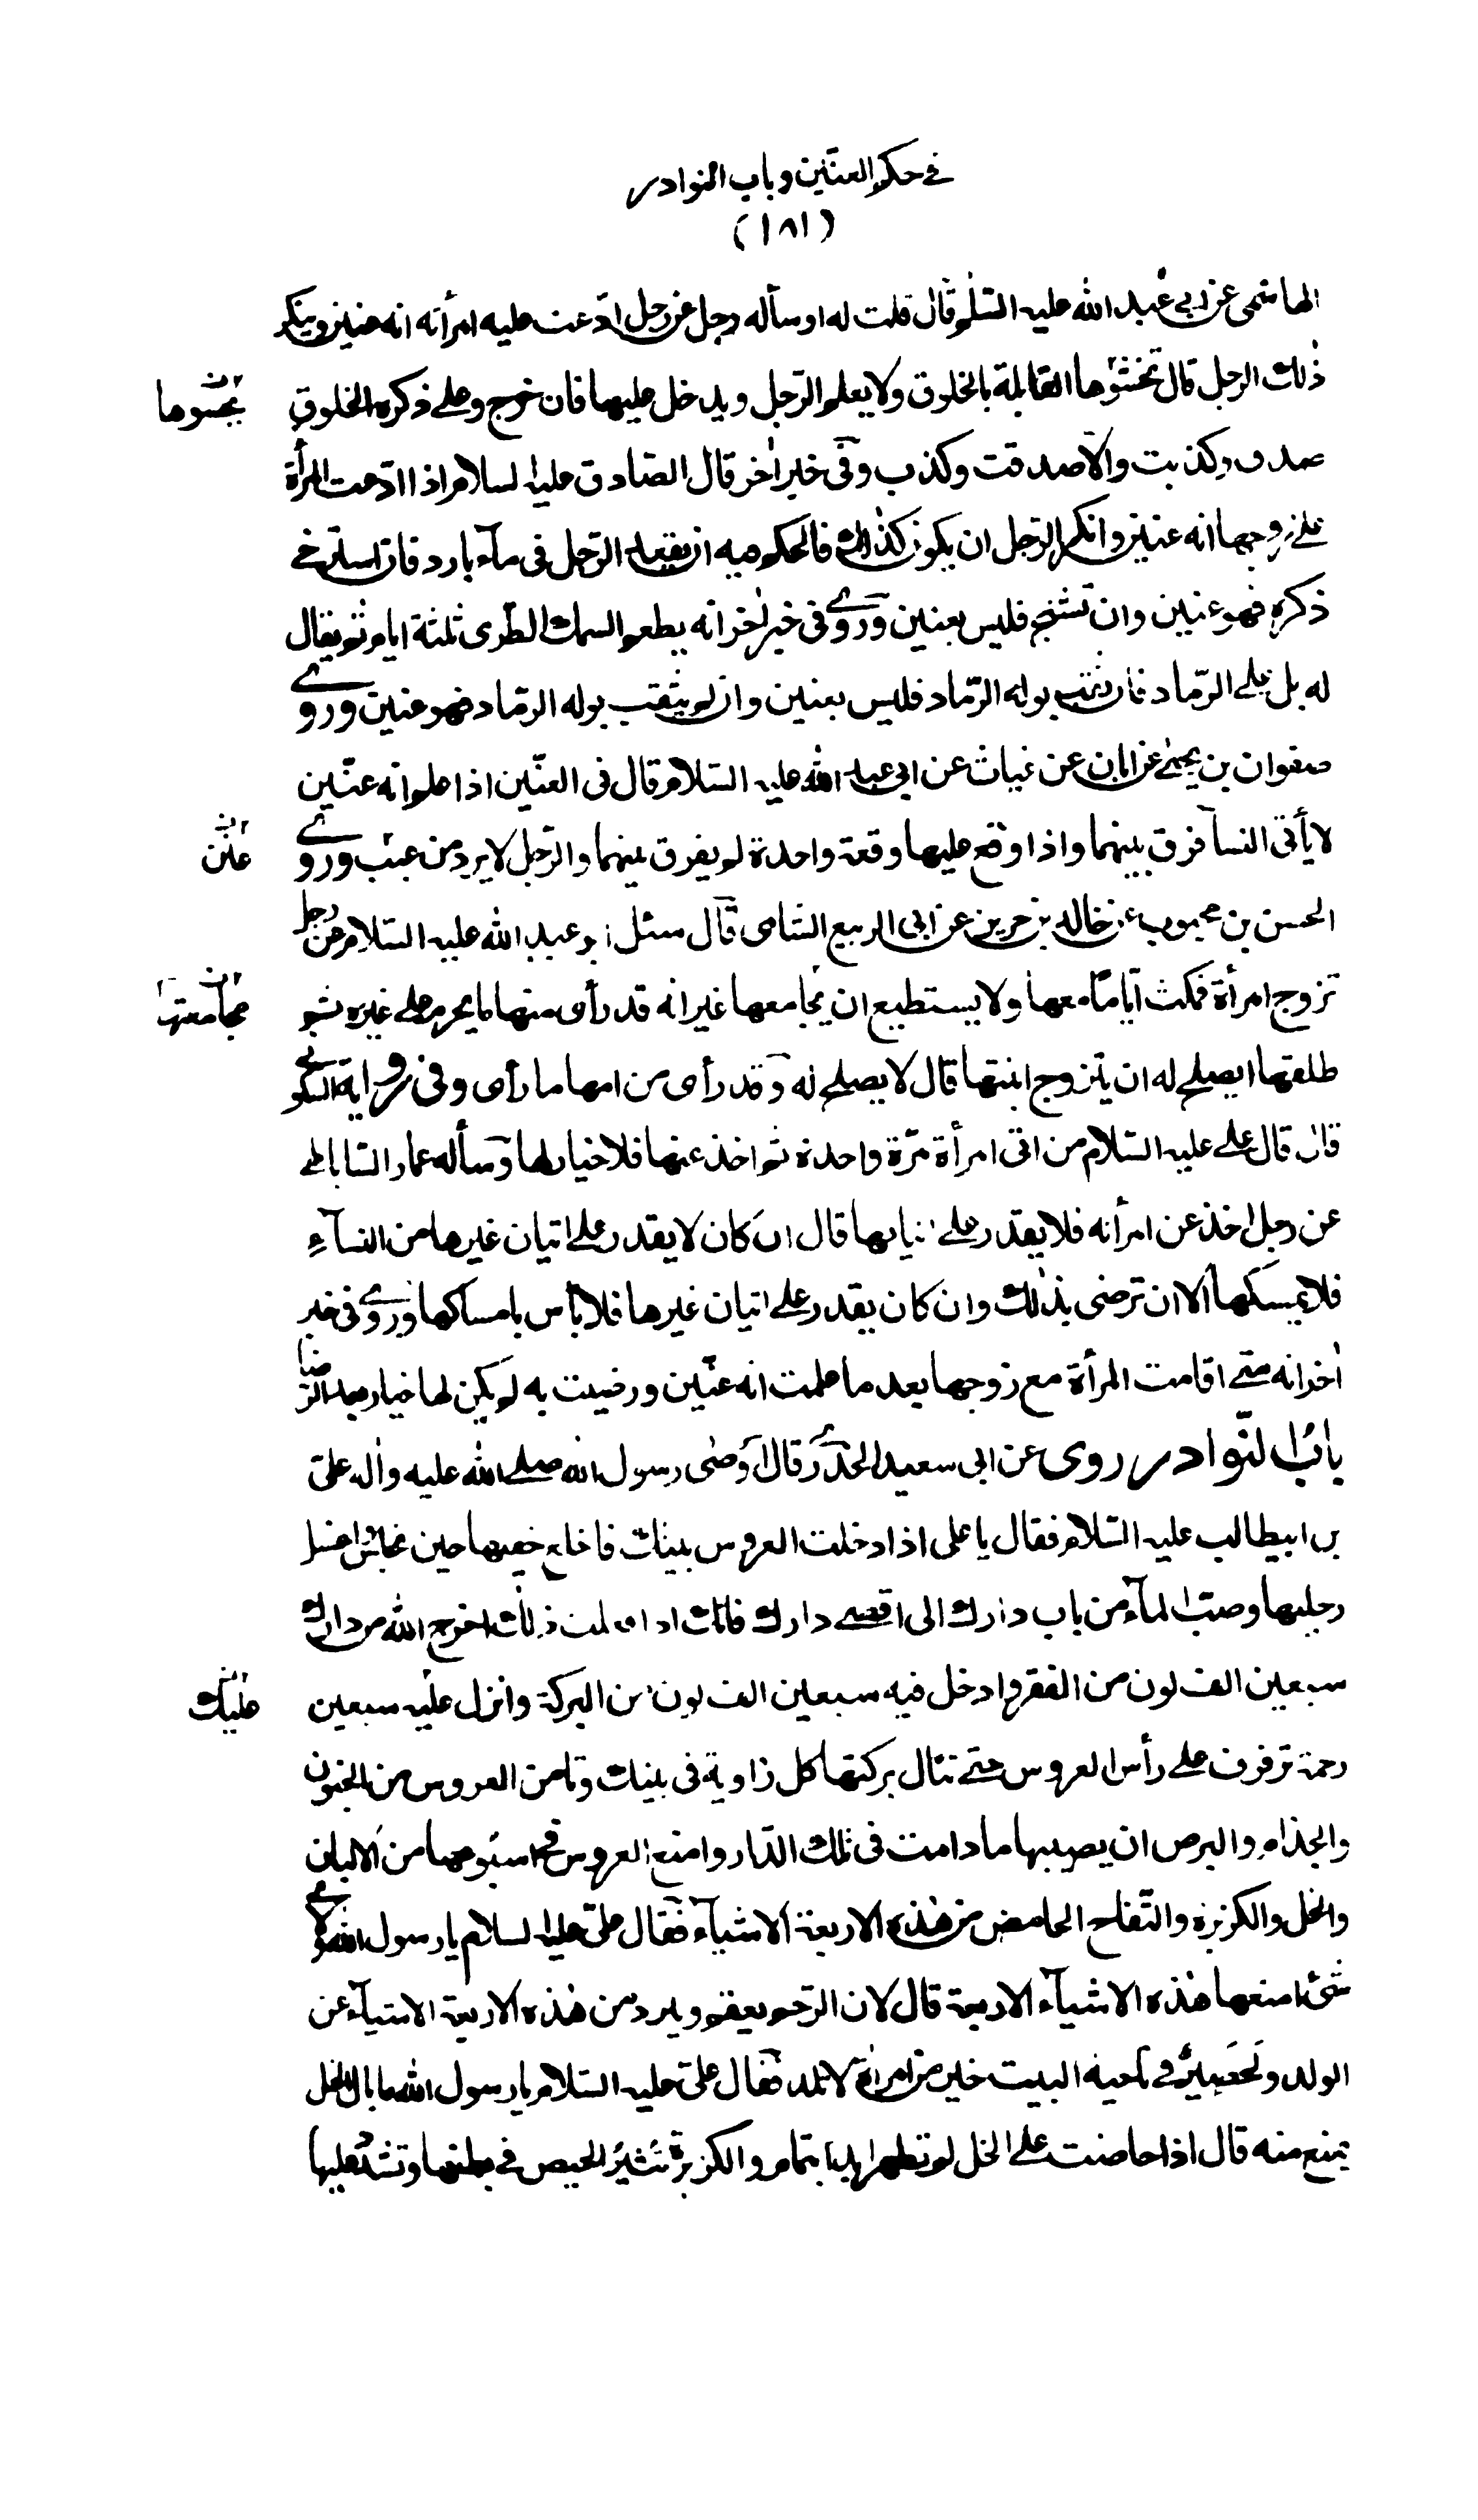 في حكم العنّين وباب النوادر
(١٨١)
الهاشمي عن ابي عبد الله عليه السّلم قال قلت له او سأله رجل عن رجل ادّعت عليه امرأته انه عنين وينكر
ذلك الرجل قال تحشوها القابلة بالخلوق ولا يعلم الرّجل ويدخل عليها فان خرج وعلى ذكره الخلوق
صدق وكذبت والّا صدقت وكذب وفي خبر اٰخر قال الصّادق عليه السلام اذا ادّعت المرأة
على زوجها انه عنين وانكر الرّجل ان يكون كذلك فالحكم فيه ان يقعد الرّجل في مآء بارد فان استرخى
ذكره فهو عنين وان تشنج فليس بعنين وروى في خبر اٰخر انه يطعم السمك الطّرى ثلثة ايام ثم يقال
له بل على الرّماد فان ثقب بوله الرّماد فليس بعنين وان لم يثقب بوله الرّماد فهو عنين وروى
صفوان بن يحيى عن ابان عن غياث عن ابي عبد الله عليه السّلام قال في العنّين اذا علم انه عنّين
لا يأتي النسآء فرق بينهما واذا وقع عليها وقعة واحدة لم يفرق بينهما والرّجل لا يرد من عيب وروى
الحسن بن محبوب عن خالد بن جرير عن ابي الربيع الشامى قال سئل ابو عبد الله عليه السّلام عن رجل
تزوج امرأة فمكث ايّامًا معها ولا يستطيع ان يجامعها غير انه قد رأى منها ما يحرم على غيره ثم
طلقها ايصلح له ان يتزوج ابنتها قال لا يصلح له وقد رأى من امها ما رأى وفي رواية السكوني
قال قال على عليه السّلام من اتى امرأة مرّة واحدة ثم اخذ عنها فلا خيار لها وسأله عمار السّاباطى
عن رجل اخذ عن امرأته فلا يقدر على اتيانها قال ان كان لا يقدر على اتيان غيرها من النسآءِ
فلا يمسكها الا ان ترضى بذلك وان كان يقدر على اتيان غيرها فلا بأس بامساكها وروى في خبر
اٰخر انه متى اقامت المرأة مع زوجها بعد ما علمت انه عنّين ورضيت به لم يكن لها خيار بعد الرّضا
باب النّوادر روى عن ابي سعيد الخدرى قال اوصى رسول الله صلى الله عليه واٰله علىّ
بن ابيطالب عليه السّلام فقال يا على اذا دخلت العروس بيتك فاخلع خفيها حين تجلس واغسل
رجليها وصبّ المآء من باب دارك الى اقصى دارك فانك اذا فعلت ذلك اخرج الله من دارك
سبعين الف لون من الفقر وادخل فيه سبعين الف لون من البركة وانزل عليه سبعين
رحمة ترفرف على رأس العروس حتى تنال بركتها كل زاوية في بيتك وتأمن العروس من الجنون
والجذام والبرص ان يصيبها ما دامت في تلك الدّار وامنع العروس في اسبوعها من الالبان
والخل والكزبرة والتّفاح الحامض من هذه الاربعة الاشيآء فقال علىّ عليه السلام يا رسول الله ولأى
شئ امنعها هذه الاشيآء الاربعة قال لان الرّحم يعقم ويبرد من هذه الاربعة الاشيآء عن
الولد ولحصير في ناحية البيت خير من امرأة لا تلد فقال علىّ عليه السّلام يا رسول الله ما بال الخل
تمنع منه قال اذا حاضت على الخل لم تطهر ابدا بتمام والكزبرة تثير الحيض في بطنها وتشدّ عليها
تحشوها
عنن
مجامعتها
عليك